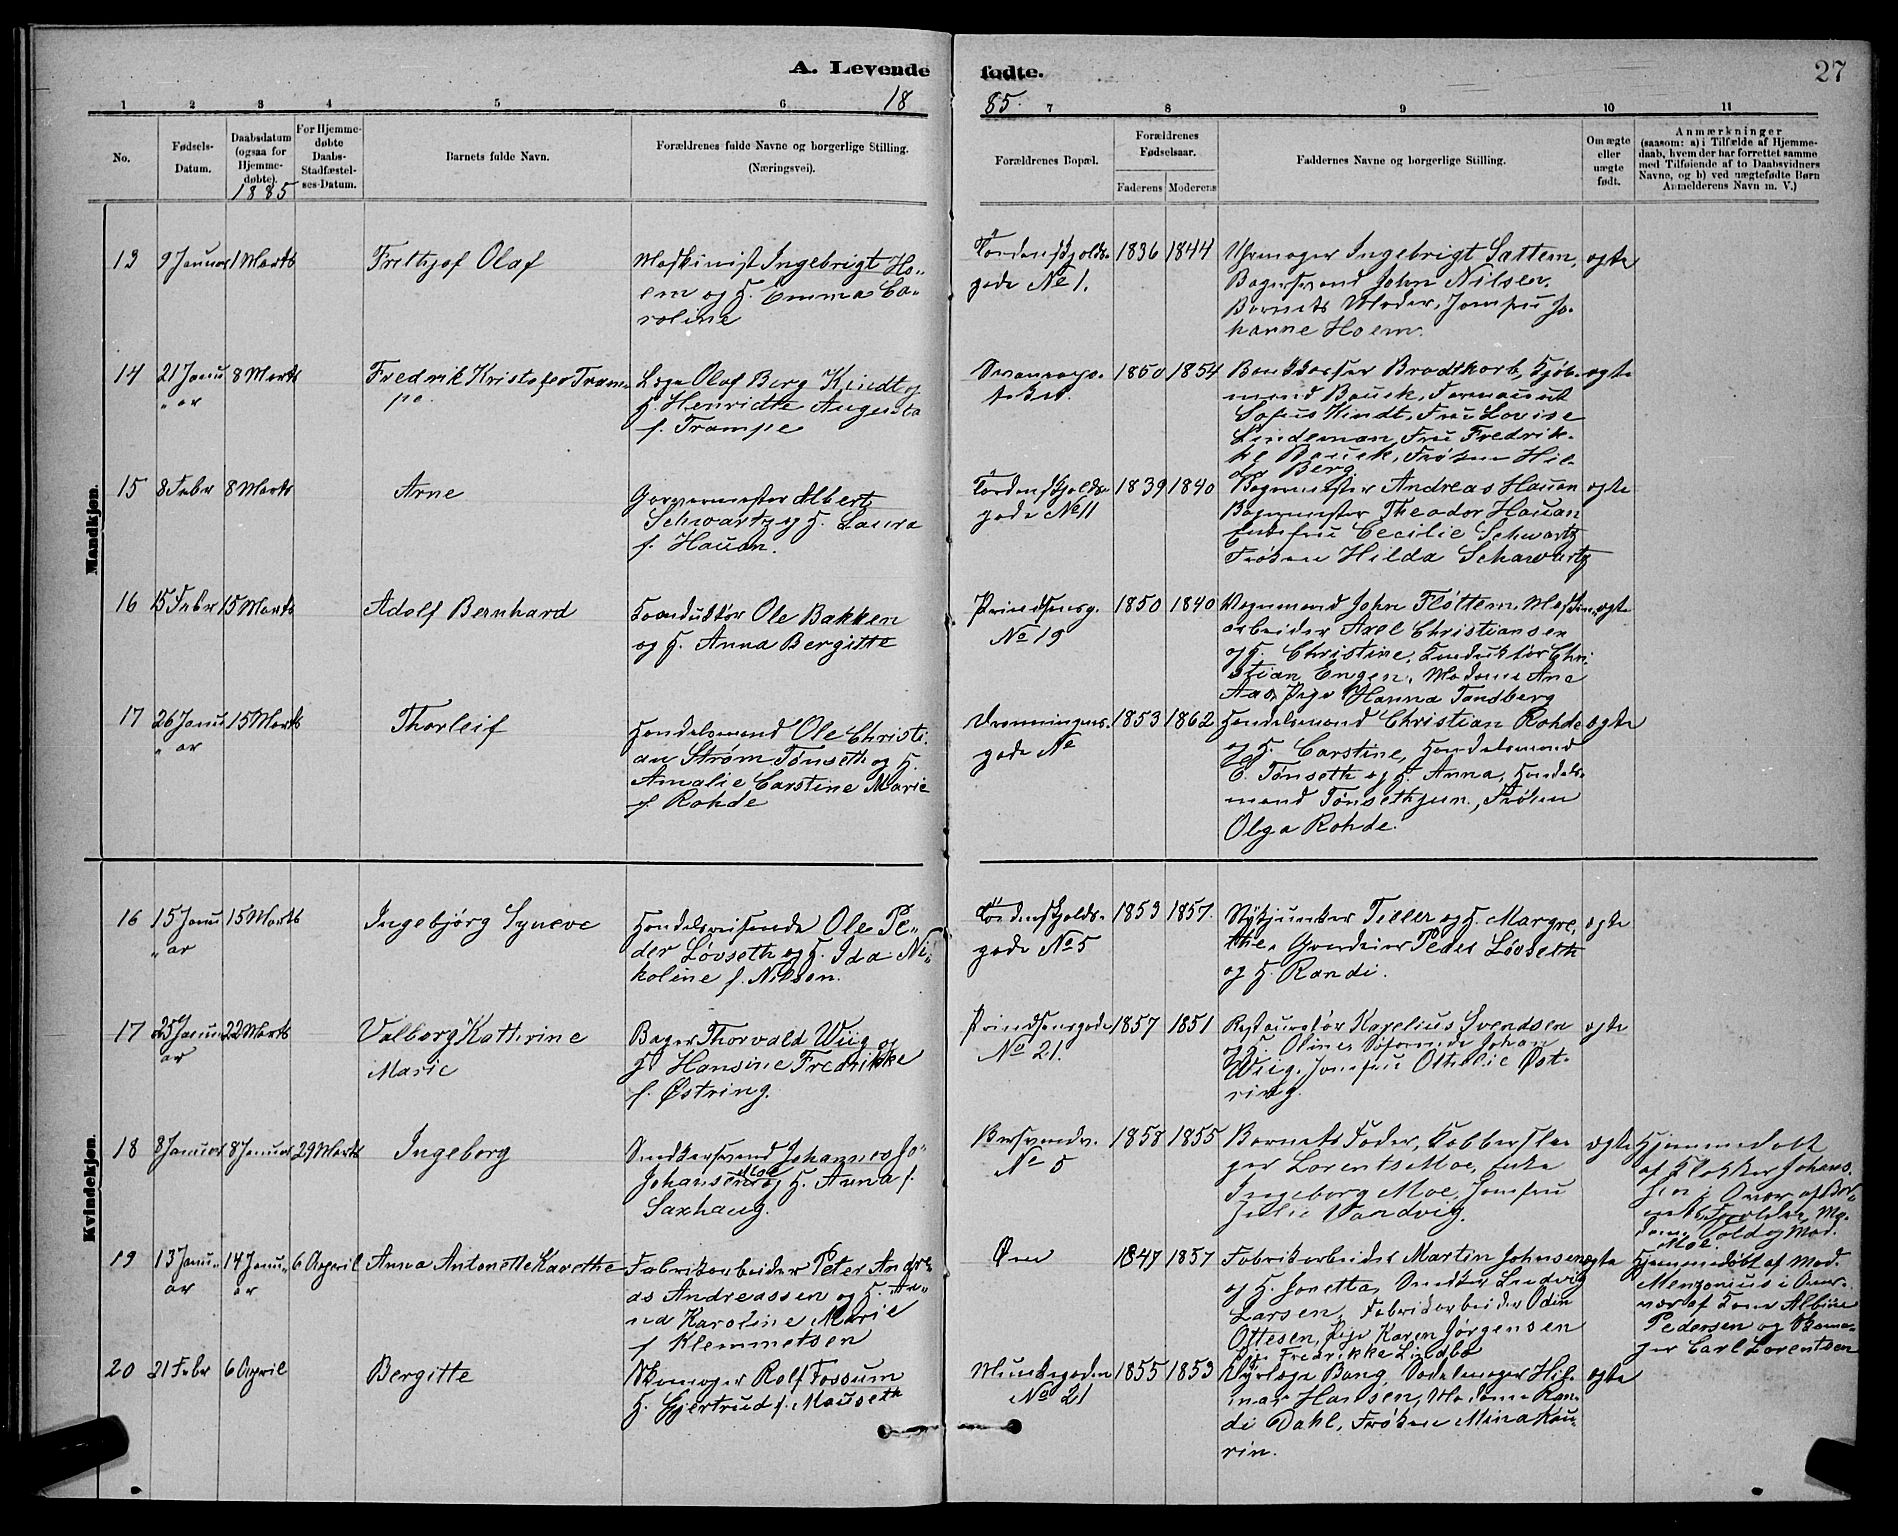 A. Levende
18
fødte.
85.
27
1
2
3
4
5
6
7
8
9
10
11
No.
Fødsels-
Datum.
Daabsdatum
(ogsaa for
Hjemme-
døbte).
1885
For Hjemme-
døbte
Daabs-
Stadfæstel-
ses-Datum.
Barnets fulde Navn.
Forældrenes fulde Navne og borgerlige Stilling.
(Næringsvei).
Forældrenes Bopæl.
Forældrenes
Fødselsaar.
Faderens
Moderens
Faddernes Navne og borgerlige Stilling.
Om ægte
eller
uægte
født.
Anmærkninger
(saasom: a) i Tilfælde af Hjemme-
daab, hvem der har forrettet samme
med Tilføiende af to Daabsvidners
Navne, og b) ved uægtefødte Børn
Anmelderens Navn m. V.)
Mandkjøn.
13
9 Januar
1 Marts
Frithjof Olaf
Maskinist Ingebrigt Ho-
em og H. Emma Ca-
roline
Tordenskjolds-
gade No 1.
1836
1844
Uhrmager Ingebrigt Sattem,
Bagersvend John Nilsen,
Barnets Moder, Jomfru Jo-
hanne Hoem.
ægte
14
21 Janu
" ar
8 Marts
Fredrik Kristofer Tram-
pe.
Læge Olaf Berg Kindt og
H. Henridte Augusta
f. Trampe
1850
1854
Brodtkorb, Kjøb-
mand Bauck,
Sofus Kindt, Fru Lovise
Lindeman, Fru Fredrik-
ke Bauck, Frøken Hil-
da Berg
ægte
15
8 Febr
8 Marts
Arne
Garvermester Albert
Schwartz og H. Laura
f. Hauan.
Tordenskjolds-
gade No 11
1839
1840
Bagermester Andreas Hauan
Bagermester Theodor Hauan
Enkefru Cecilie Schwartz
Frøken Hilda Schawartz
ægte
16
15 Febr
15 Marts
Adolf Bernhard
Konduktør Ole Bakken
og H. Anna Bergitte
Prindsensg.
No 19
1850
1840
Vognmand John Fløttem, Maskin-
arbeider Axel Christiansen
og H. Christine, Konduktør Chri-
stian Engen, Madame Ane
Aas, Pige Hanna Tandberg
ægte
17
26 Janu
" ar
15 Marts
Thorleif
Handelsmand Ole Christi-
an Strøm Tønseth og H.
Amalie Carstine Marie
f. Rohde
Dronningens-
gade No
1853
1862
Handelsmand Christian Rohde
og H. Carstine, Handelsmand
Tønseth og H. Anna, Handels-
mand Tønseth jun., Frøken
Olga Rohde.
ægte
Kvindekjøn.
16
15 Janu
" ar
15 Marts
Ingebjørg Syneve
Handelsreisende Ole Pe-
der Løvseth og H. Ida Ni-
koline f. Nilsen.
Tordenskjolds-
gade No 5
1853
1857.
Teller og H. Margre-
the, Gaardeier Peder Løvseth
og H. Randi.
ægte
17
25 Janu
ar
22 Marts
Valborg Kathrine
Marie
Bager Thorvald Wiig og
H. Hansine Fredrikke
f. Østring.
Prindsensgade
No 21.
1857
1851
Restauratør Karelius Svendsen
og H. Oline, Søfarende Johan
Wiig, Jomfru Othelie Øst-
ring.
ægte
18
8 Januar
8 Januar
29 Marts
Ingeborg
Snedkersvend Johannes Jo-
Johansen Moe og H. Anna f.
Saxhaug.
No 5
1858
1855
Barnets Fader, Kobbersla-
ger Lorents Moe, Enke
Ingeborg Moe, Jomfru
Julie Vandvig.
ægte
Hjemmedøbt
af Klokker Johan-
19
13 Janu-
ar
14 Janu-
ar
6 April
Anna Antonette Karethe
Fabrikarbeider Peter Andre-
as Andreassen og H. An-
na Karoline Marie
f. Klemmetsen
Øen
1847
1857
Fabrikarbeider Martin Johnsen
og H. Jonetta, Snedker Ludvig
Larsen, Fabrikarbeider Odin
Ottesen, Pige Karen Jørgensen
Pige Fredrikke
ægte
Hjemmedøbt af Mad.
Menzonius i Over-
vær af Kone Albine
Pedersen og Skoma-
ger Carl Lorentsen
20
21 Febr
6 April
Bergitte
Skomager Rolf Fossum
H. Gjertrud f. Mauseth
Munkegaden
No 21
1855
1853
Dyrlæge Bang, Sadelmager Hil-
mar Hansen, Madame Ran-
di Dahl, Frøken Mina Kau-
rin.
ægte